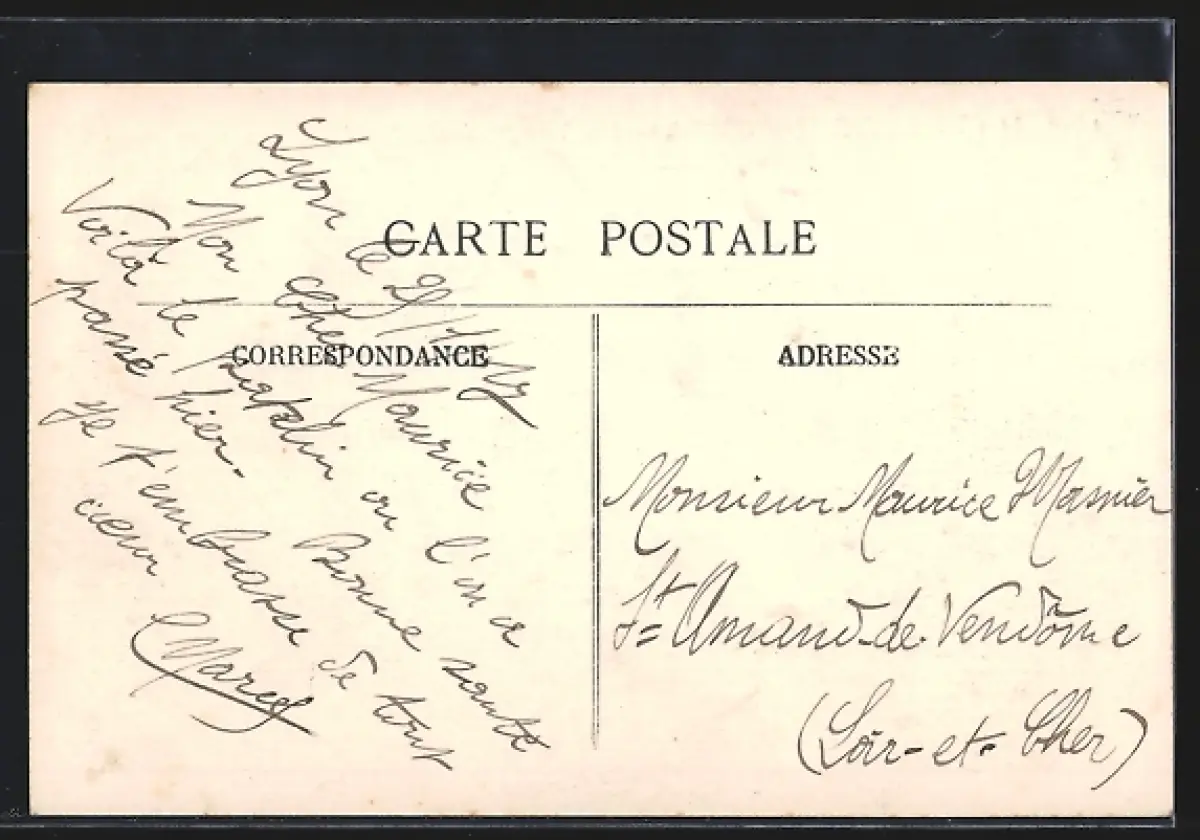 CARTE POSTALE
CORRESPONDANCE
ADRESSE
Lyon le
Mon cher Maurice
Voilà le patelin où l'on a
passé hier. Bonne santé
Je t'embrasse de tout
cœur Marcel
Monsieur Maurice
St Amand-de-Vendôme
(Loir-et-Cher)